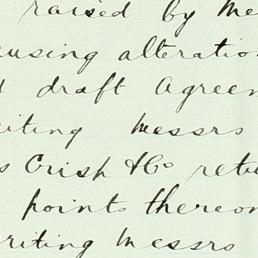 raised by Me
using alteratio
draft Agreen
iting Messrs
s Crisp & Co retu
points thereon
riting Messrs